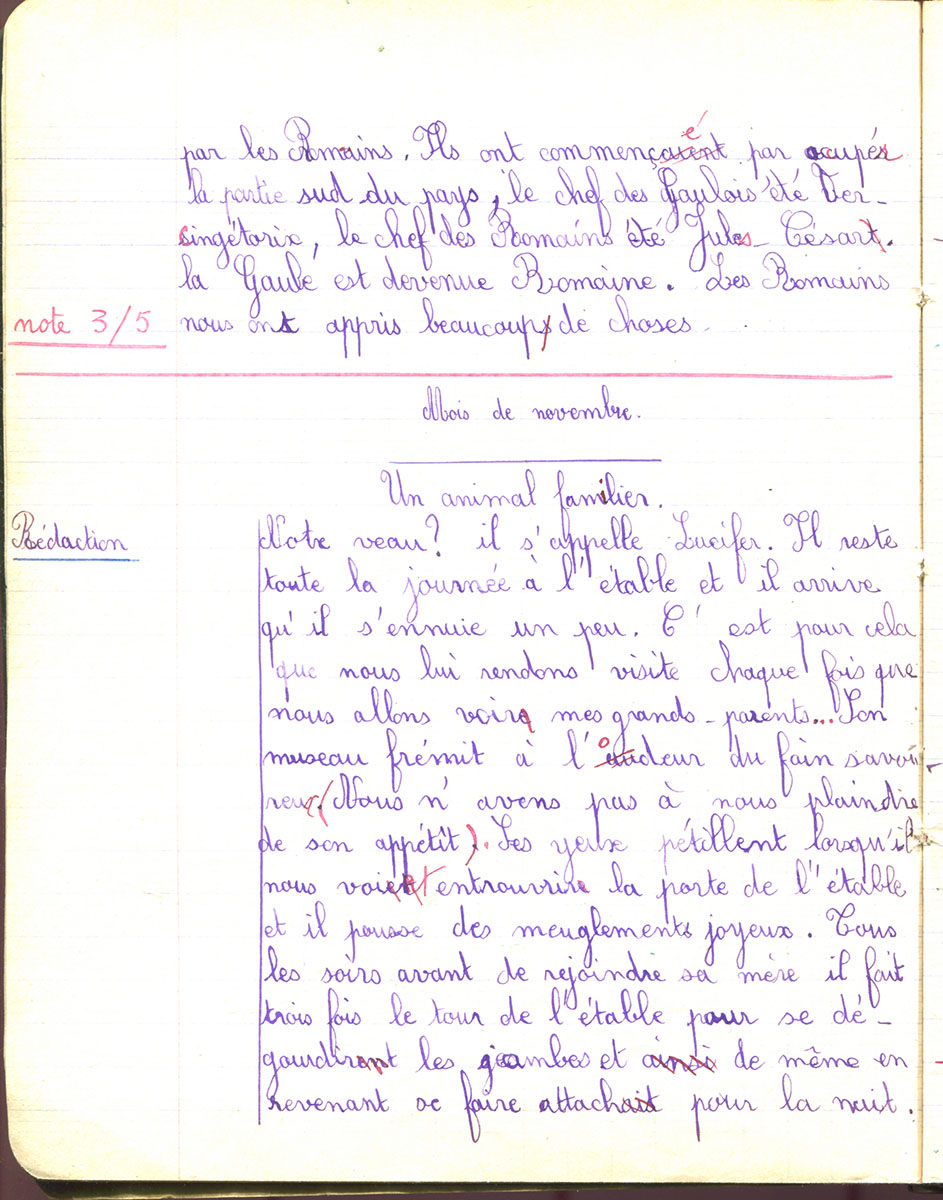 par les Romains. Ils ont commençaient é par ocupér
la partie sud du pays, le chef des Gaulois été Ver-
singétorix, le chef des Romains été Jules-Césart.
la Gaule est devenue Romaine. Les Romains
note 3/5 nous ont appris beaucoup de choses.
Mois de novembre.
Un animal familier.
Rédaction
Notre veau? il s'appelle Lucifer. Il reste
toute la journée à l'étable et il arrive
qu'il s'ennuie un peu. C'est pour cela
que nous lui rendons visite chaque fois que
nous allons voire mes grands-parents... Son
museau frémit à l'audeur o du foin savou-
reux. (Nous n'avons pas à nous plaindre
de son appétit). Ses yeux pétillent lorsqu'il
nous voient entrouvrire la porte de l'étable
et il pousse des meuglements joyeux. Tous
les soirs avant de rejoindre sa mère il fait
trois fois le tour de l'étable pour se dé-
gourdirent les jambes et ainsi de même en
revenant se faire attachait pour la nuit.